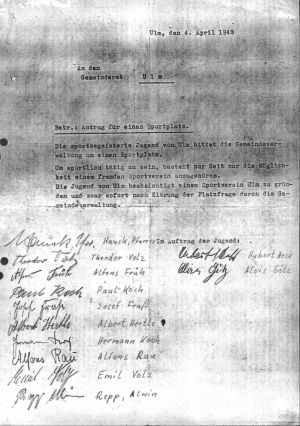 Ulm, den 4. April 1948
An den
Gemeinderat Ulm
Betr.: Antrag für einen Sportplatz.
Die sportbegeisterte Jugend von Ulm bittet die Gemeindever-
waltung um einen Sportplatz.
Um sportlich tätig zu sein, besteht zur Zeit nur die Möglich-
keit einem fremden Sportverein anzugehören.
Die Jugend von Ulm beabsichtigt einen Sportverein Ulm zu grün-
den und zwar sofort nach Klärung der Platzfrage durch die Ge-
meindeverwaltung.
Hauck, Pfarrer Im Auftrag der Jugend:
Theodor Volz Theodor Volz Hubert Aeck
Alfons Früh Alois Götz Alois Götz
Paul Koch Paul Koch
Josef Fraß
Albert Hertle Albert Hertle
Hermann Koch
Alfons Rau Alfons Rau
Emil Volz Emil Volz
Repp, Alwin